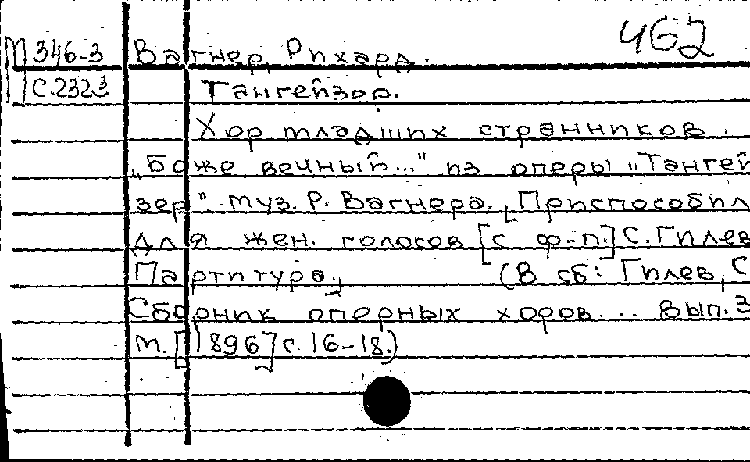 462
М 346-3 Вагнер, Рихард.
С.2323 Тангейзер.
Хор младших странников.
„Боже вечный..." из оперы „Тангей
зер". муз. Р. Вагнера. [Приспособил
для жен. голосов [с ф-п.] С. Гилев
Партитура. (В сб: Гилев, С
Сборник оперных хоров... Вып. 3
М. [1896] с. 16-18.)